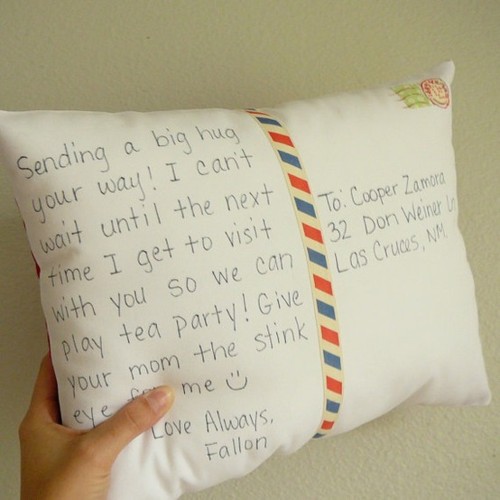 Sending a big hug
your way! I can't
wait until the next
time I get to visit
with you so we can
play tea party! Give
your mom the stink
eye me
Love Always,
Fallon
To: Cooper Zamora
32 Don Weiner Ln
Las Cruces, NM.